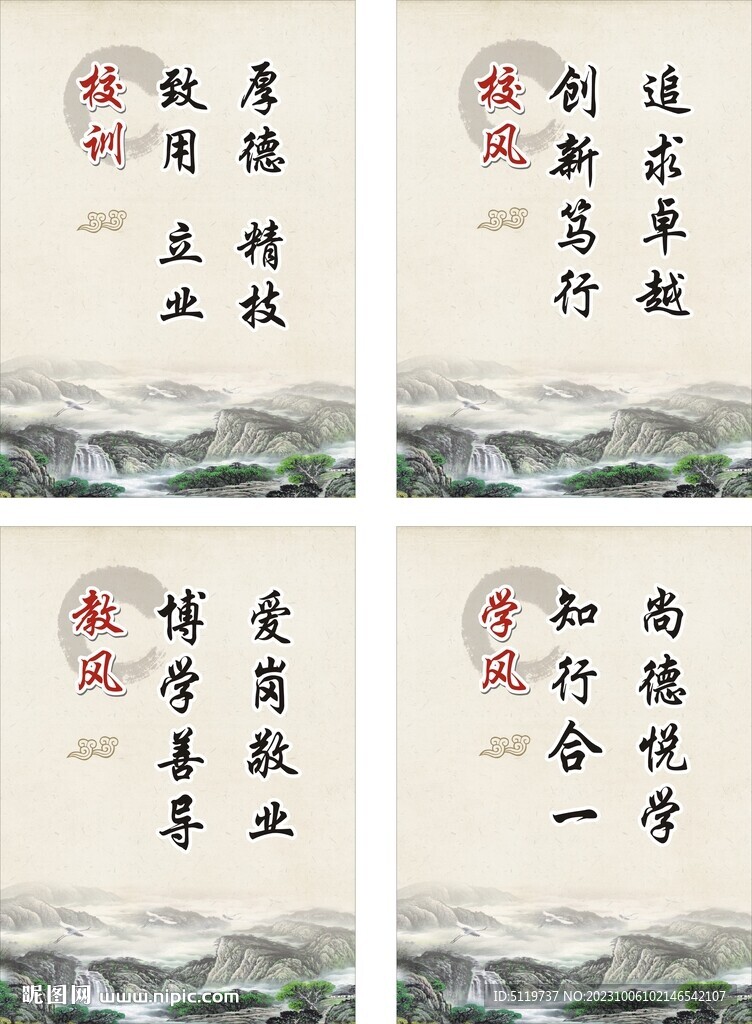 厚德 精技
致用 立业
校训
追求卓越
创新笃行
校风
爱岗敬业
博学善导
教风
尚德悦学
知行合一
学风
昵图网 www.nipic.com
ID:5119737 NO:20231006102146542107